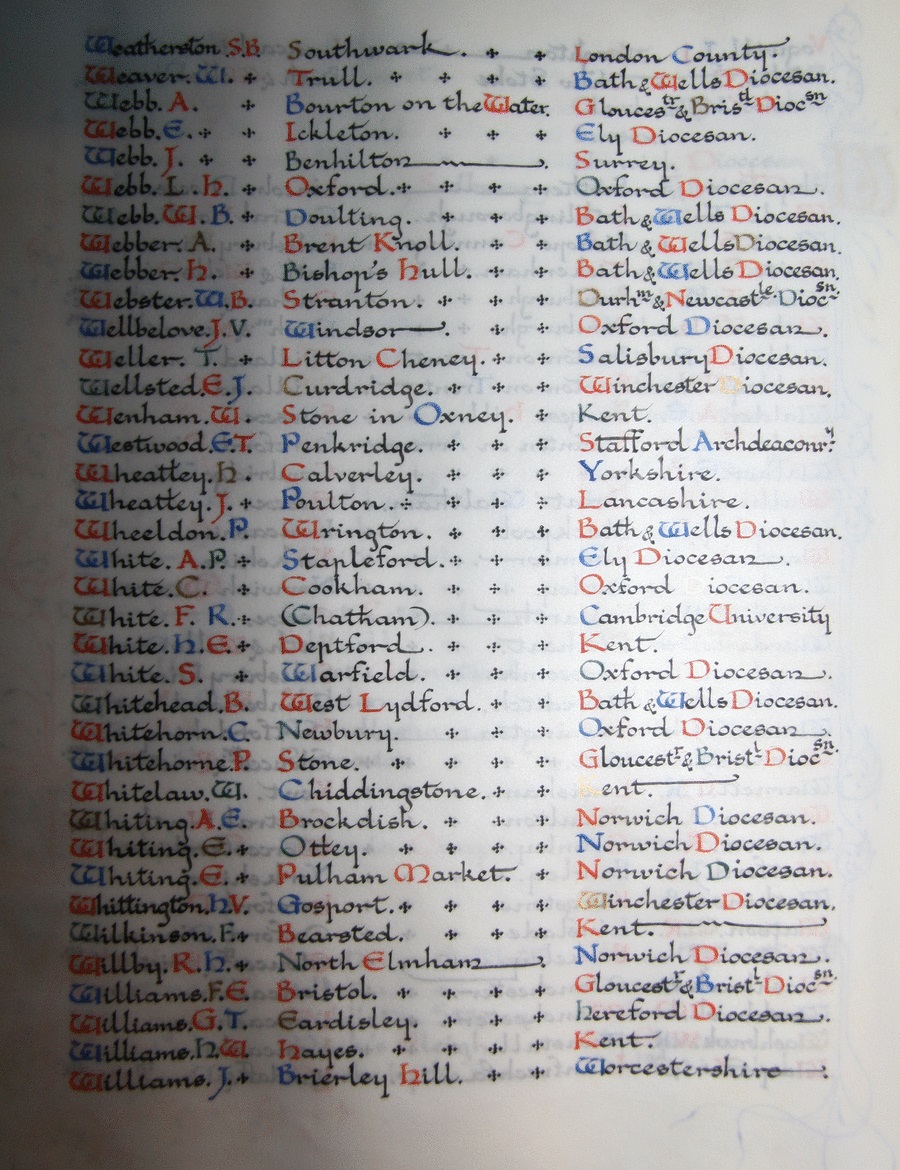 Weatherston S.B. Southwark. London County.
Weaver. W. Trull. Bath & Wells Diocesan.
Webb. A. Bourton on the Water. Gloucestr & Bristl Diocsn
Webb. E. Ickleton. Ely Diocesan.
Webb. J. Benhilton. Surrey.
Webb. L. H. Oxford. Oxford Diocesan.
Webb. W. B. Doulting. Bath & Wells Diocesan.
Webber. A. Brent Knoll. Bath & Wells Diocesan.
Webber. H. Bishop's Hull. Bath & Wells Diocesan.
Webster. W. B. Stranton. Durhm & Newcastle Diocsn.
Wellbelove. J. V. Windsor. Oxford Diocesan.
Weller. T. Litton Cheney. Salisbury Diocesan.
Wellsted. E. J. Curdridge. Winchester Diocesan.
Wenham. W. Stone in Oxney. Kent.
Westwood. E. T. Penkridge. Stafford Archdeaconry.
Wheatley. H. Calverley. Yorkshire.
Wheatley. J. Poulton. Lancashire.
Wheeldon. P. Wrington. Bath & Wells Diocesan.
White. A. P. Stapleford. Ely Diocesan.
White. C. Cookham. Oxford iocesan.
White. F. R. (Chatham). Cambridge University
White. H. E. Deptford. Kent.
White. S. Warfield. Oxford Diocesan.
Whitehead. B. West Lydford. Bath & Wells Diocesan.
Whitehorn. C. Newbury. Oxford Diocesan.
Whitehorne. P. Stone. Gloucestr & Bristl Diocsn.
Whitelaw. W. Chiddingstone. Kent.
Whiting. A. E. Brockdish. Norwich Diocesan.
Whiting. E. Ottey. Norwich Diocesan.
Whiting. E. Pulham Market. Norwich Diocesan.
Whittington. H. V. Gosport. Winchester Diocesan.
Wilkinson. F. Bearsted. Kent.
Willby. R. H. North Elmham. Norwich Diocesan.
Williams. F. E. Bristol. Gloucestr & Bristl Diocsn
Williams. G. T. Eardisley. Hereford Diocesan.
Williams. H. W. Hayes. Kent.
Williams. J. Brierley Hill. Worcestershire.